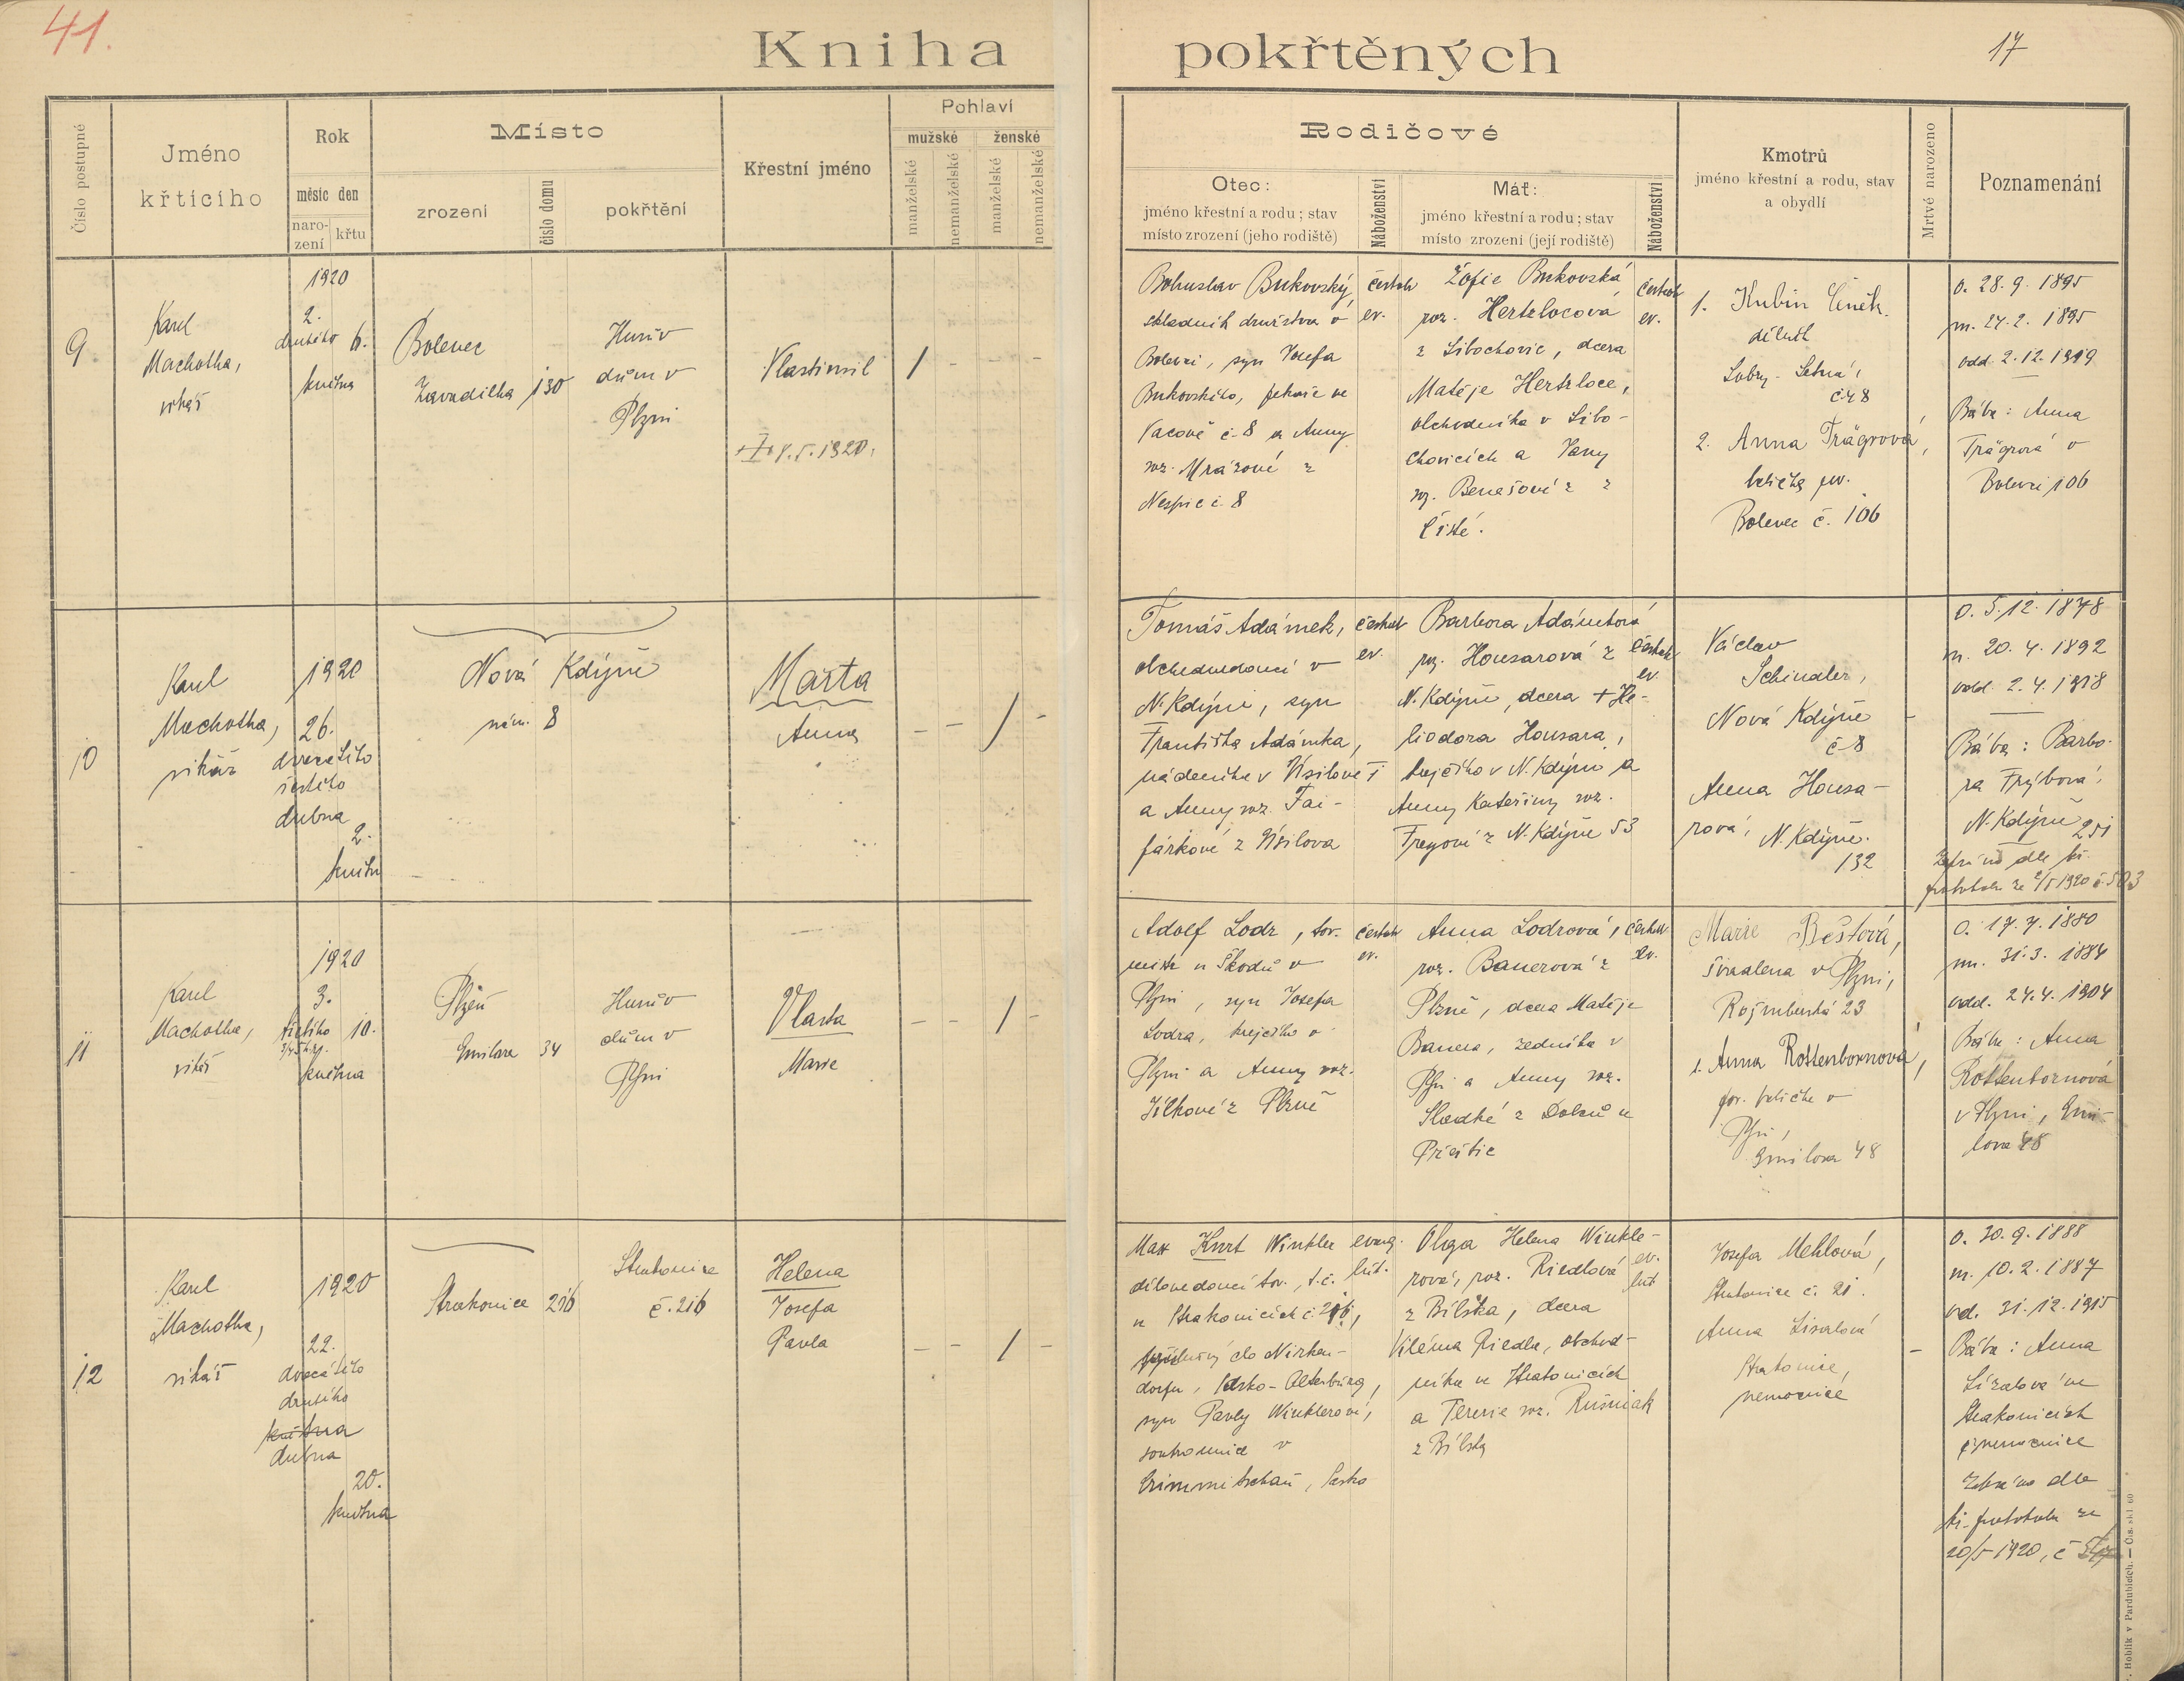 41.
Kniha pokřtěných
17
Číslo postupné
Jméno
křtícího
Rok
měsíc den
naro-
zení
křtu
Místo
zrození
číslo domu
pokřtění
Křestní jméno
Pohlaví
mužské
ženské
manželské
nemanželské
manželské
nemanželské
Rodičové
Otec:
jméno křestní a rodu; stav
místo zrození (jeho rodiště)
Náboženství
Máť:
jméno křestní a rodu; stav
místo zrození (její rodiště)
Náboženství
Kmotrů
jméno křestní a rodu, stav
a obydlí
Mrtvě narozeno
Poznamenání
9
Karel
Machotka,
vikář
1920
2.
druhého 6.
května
Bolevec
Zavadilka 130
Husův
dům v
Plzni
Vlastimil
+ 7.5.1920.
/ - - -
Bohuslav Bukovský
skladník družstva v
Bolevci, syn Josefa
Bukovského, pekaře ve
Vacově č. 8 a Anny
roz. Mrázové z
Nespic č. 8
českob
ev.
Žofie Bukovská
roz. Hertzlocová
z Libochovic, dcera
Matěje Hertzloce,
obchodníka v Libo-
chovicích a Jany
roz. Benešové z
Čisté.
českob
ev.
1. Kubín Čeněk.
dělník
Lobzy-Letná,
č. 48
2. Anna Trägrová,
babička por.
Bolevec č. 106
o. 28. 9. 1895
m. 24. 2. 1895
odd. 2. 12. 1919
Bába: Anna
Trägrová v
Bolevci 106
10
Karel
Machotka,
vikář
1920
26.
dvacátého
šestého
dubna
2.
května
Nová Kdýně
nám. 8
Marta
Anna
- - / -
Tomáš Adámek,
obchodvedoucí v
N. Kdýni, syn
Františka Adámka,
nádeníka v Úsilově
a Anny roz. Fai-
fárkové z Úsilova
českob
ev.
Barbora Adámková
roz. Housarová z
N. Kdýně, dcera + He-
liodora Housara,
krejčího v N. Kdýni a
Anny Kateřiny roz.
Freyové z N. Kdýně 53
českob
ev.
Václav
Schindler,
Nová Kdýně
č. 8
Anna Housa-
rová, N. Kdýně.
132
-
o. 5. 12. 1878
m. 20. 4. 1892
odd. 2. 4. 1918
Bába: Barbo-
ra Frýbová,
N. Kdýně 251
Zapsáno dle kř.
protokolu ze 2/5 1920 č. 503
11
Karel
Machotka,
vikář
1920
3.
třetího 10.
května
Plzeň
Emilova 34
Husův
dům v
Plzni
Vlasta
Marie
- - / -
Adolf Lodr, tov.
mistr u Škodů v
Plzni, syn Josefa
Lodra, krejčího v
Plzni a Anny roz.
Jílkové z Plzně
českob
ev.
Anna Lodrová,
roz. Bauerová z
Plzně, dcera Matěje
Bauera, zedníka v
Plzni a Anny roz.
Sladké z Dolců u
Přeštic
českob
ev.
Marie Beštová,
švadlena v Plzni,
Rožmberská 23
Anna Rottenbornová,
por. babička v
Plzni,
Emilova 48
o. 17. 7. 1880
m. 31. 3. 1884
odd. 24. 4. 1904
Bába: Anna
Rottenbornová
v Plzni, Emi-
lova 48
12
Karel
Machotka,
vikář
1920
22.
dvacátého
druhého
května
dubna
20.
května
Strakonice 216
Strakonice
č. 216
Helena
Josefa
Pavla
- - / -
Max Kurt Winkler
dílovedoucí tov., t. č.
v Strakonicích č. 216,
příslušný do Nirken-
dorfu, Sasko-Altenburg,
syn Pavly Winklerové,
soukromnice v
Crimmitschau, Sasko
evang.
lut.
Olga Helena Winkle-
rová, roz. Riedlová
z Bílska, dcera
Viléma Riedla, obchod-
níka ve Strakonicích
a Terezie roz. Rusniak
z Bílska
ev.
lut
Josefa Mehlová,
Strakonice č. 21.
Anna Lisalová
Strakonice,
nemocnice
-
o. 20. 9. 1888
m. 10. 2. 1887
od. 31. 12. 1915
Bába: Anna
Lisalová ve
Strakonicích
nemocnice
Zapsáno dle
kř. protokolu ze
20/5 1920, č.
Hoblík v Pardubicích. — Čís. skl. 60